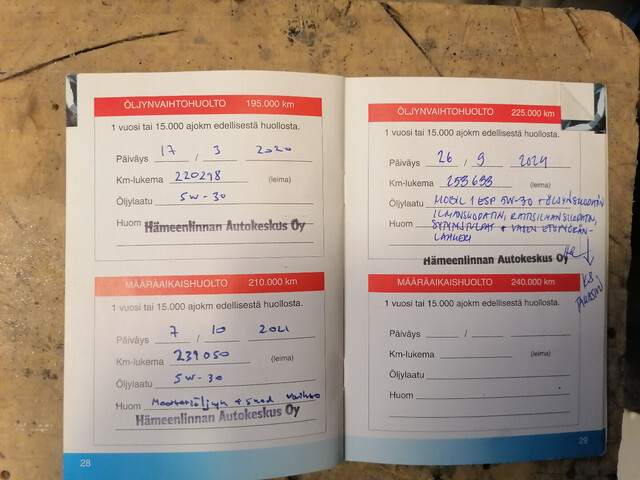 ÖLJYNVAIHTOHUOLTO 195.000 km
1 vuosi tai 15.000 ajokm edellisestä huollosta.
Päiväys 17 / 3 2020
Km-lukema 220298 (leima)
Öljylaatu 5W-30
Huom
Hämeenlinnan Autokeskus Oy
MÄÄRÄAIKAISHUOLTO 210.000 km
1 vuosi tai 15.000 ajokm edellisestä huollosta.
Päiväys 7 / 10 2021
Km-lukema 239050 (leima)
Öljylaatu 5W-30
Huom Moottoriöljyn + suod vaihto
Hämeenlinnan Autokeskus Oy
28
ÖLJYNVAIHTOHUOLTO 225.000 km
1 vuosi tai 15.000 ajokm edellisestä huollosta.
Päiväys 26 / 9 2024
Km-lukema 253698 (leima)
Öljylaatu MOBIL 1 ESP 5W-30 + ÖLJYNSUODATIN
Huom ILMANSUODATIN, RAITISILMANSUODATIN,
SYTYTYSTULPAT + VASEN ETUPYÖRÄN-
LAAKERI
Hämeenlinnan Autokeskus Oy
KS
TAKASIVU
MÄÄRÄAIKAISHUOLTO 240.000 km
1 vuosi tai 15.000 ajokm edellisestä huollosta.
Päiväys /
Km-lukema (leima)
Öljylaatu
Huom
29